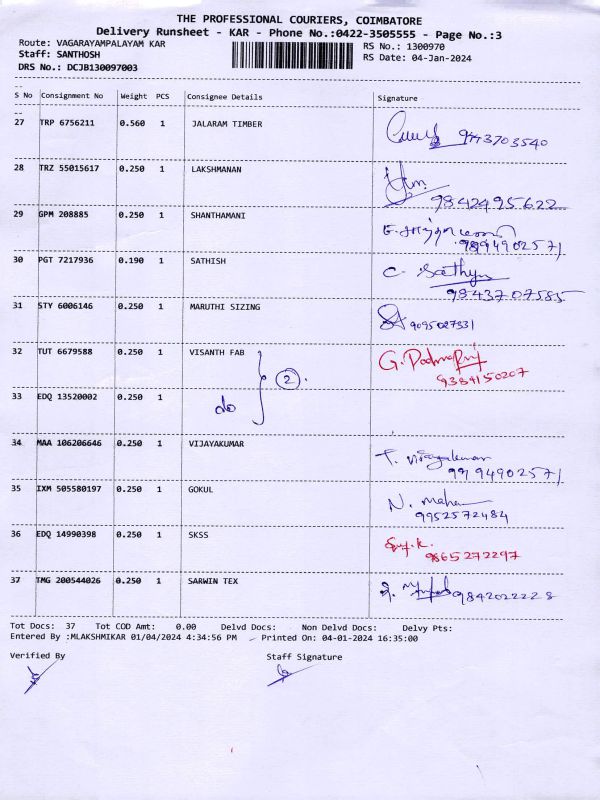 THE PROFESSIONAL COURIERS, COIMBATORE
Delivery Runsheet - KAR - Phone No.:0422-3505555 - Page No.:3
Route: VAGARAYAMPALAYAM KAR
RS No.: 1300970
Staff: SANTHOSH
RS Date: 04-Jan-2024
DRS No.: DCJB130097003
S No Consignment No Weight PCS Consignee Details Signature
27 TRP 6756211 0.560 1 JALARAM TIMBER 9443703540
28 TRZ 55015617 0.250 1 LAKSHMANAN
9842495622
29 GPM 208885 0.250 1 SHANTHAMANI
9894902571
30 PGT 7217936 0.190 1 SATHISH C. Sathys
9843707585
31 STY 6006146 0.250 1 MARUTHI SIZING
9095027331
32 TUT 6679588 0.250 1 VISANTH FAB
(2).
9384150207
33 EDQ 13520002 0.250 1 do
34 MAA 106206646 0.250 1 VIJAYAKUMAR T. Vijayakumar
99194902571
35 IXM 505580197 0.250 1 GOKUL N. maha
9952572484
36 EDQ 14990398 0.250 1 SKSS
9865272297
37 TMG 200544026 0.250 1 SARWIN TEX 9842022228
Tot Docs: 37 Tot COD Amt: 0.00 Delvd Docs: Non Delvd Docs: Delvy Pts:
Entered By :MLAKSHMIKAR 01/04/2024 4:34:56 PM Printed On: 04-01-2024 16:35:00
Verified By Staff Signature